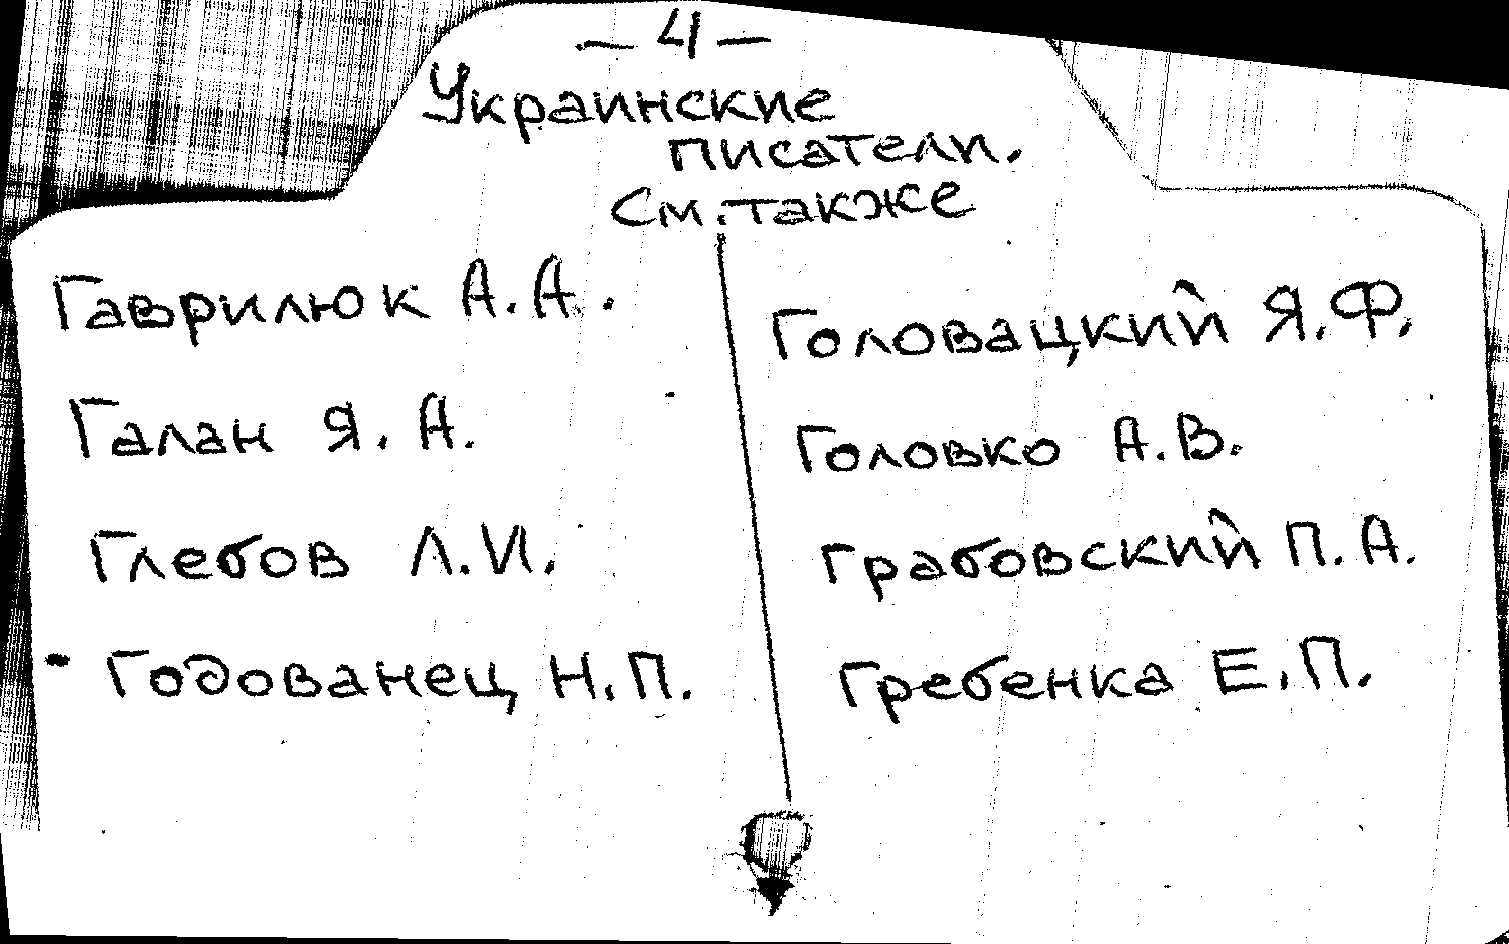 — 4 —
Украинские
писатели.
См. также
Гаврилюк А.А.
Галан Я.А.
Глебов Л.И.
Годованец Н.П.
Головацкий Я.Ф.
Головко А.В.
Грабовский П.А.
Гребенка Е.П.